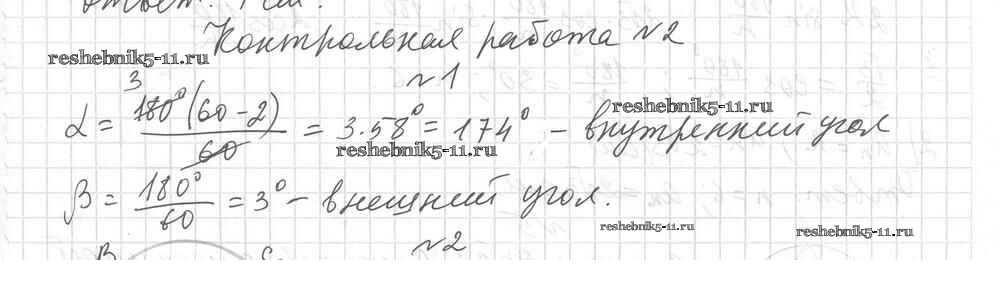 Ответ: 1 см.
Контрольная работа №2
reshebnik5-11.ru
№1
α = 180°(60-2)/60 = 3·58° = 174° – внутренний угол
3
reshebnik5-11.ru
reshebnik5-11.ru
β = 180°/60 = 3° – внешний угол.
reshebnik5-11.ru
reshebnik5-11.ru
№2
B C